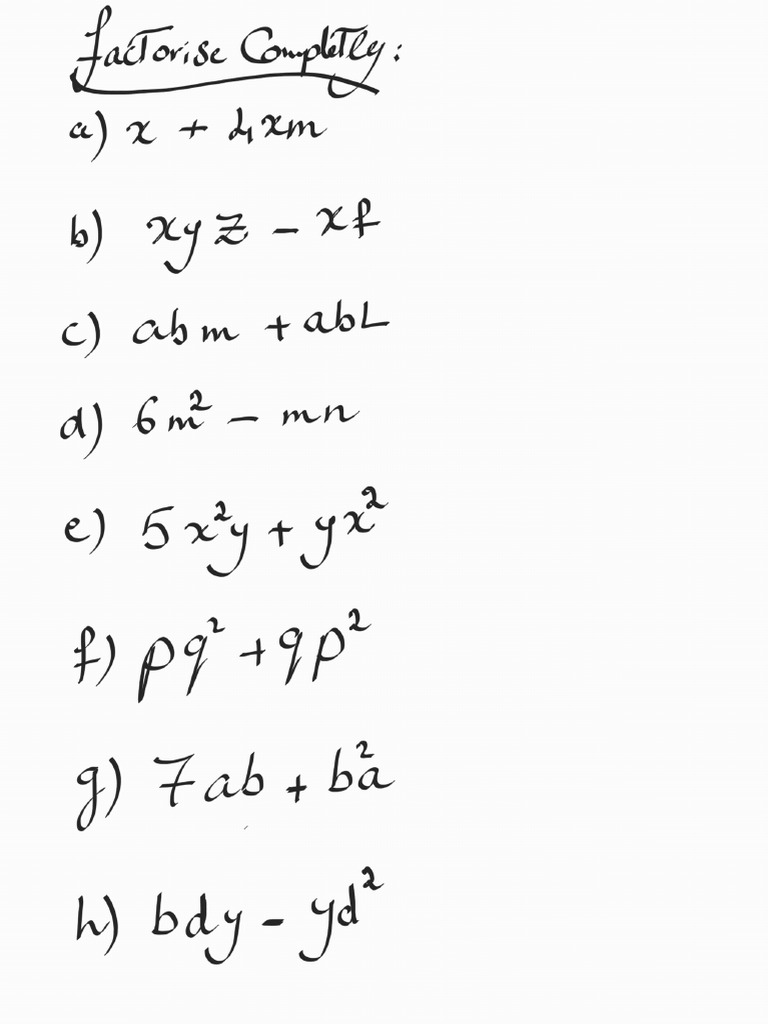 Factorise Completly:
a) x + 4xm
b) xyz - xf
c) abm + abL
d) 6m² - mn
e) 5x²y + yx²
f) pq² + qp²
g) 7ab + b²a
h) bdy - yd²